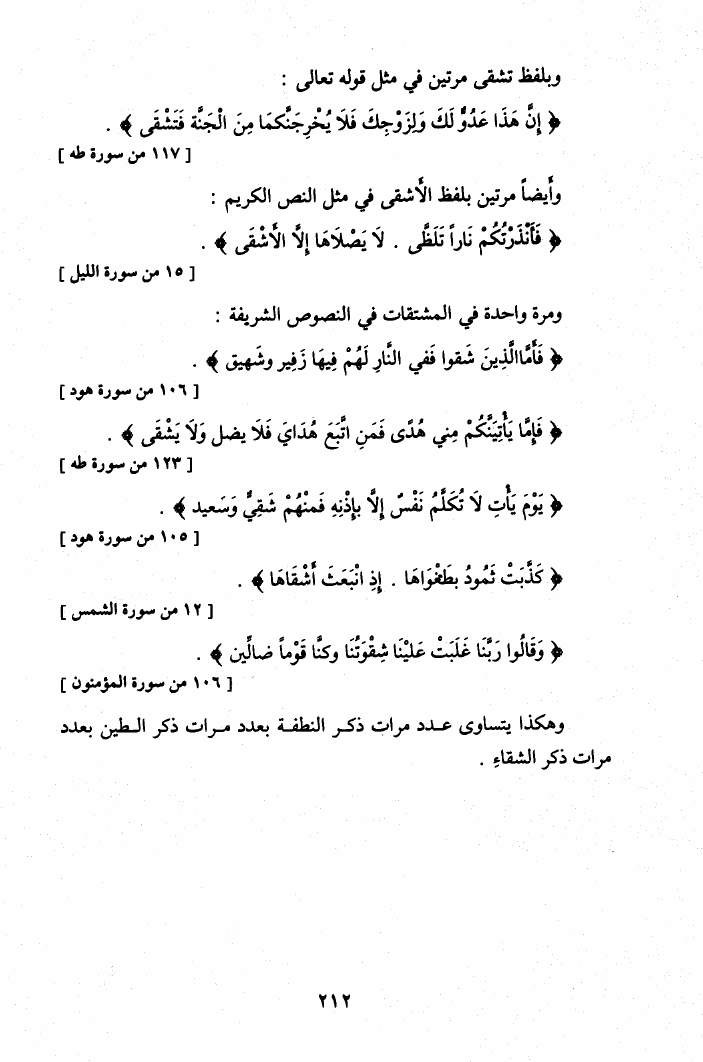 وبلفظ تشقى مرتين في مثل قوله تعالى :
﴿ إِنَّ هَذَا عَدُوٌّ لَكَ وَلِزَوْجِكَ فَلَا يُخْرِجَنَّكمَا مِنَ الْجَنَّة فَتَشْقَى ﴾ .
[ ١١٧ من سورة طه ]
وأَيضاً مرتين بلفظ الأَشقى في مثل النص الكريم :
﴿ فَأَنْذَرْتُكُمْ نَاراً تَلَظَّى . لَا يَصْلَاهَا إِلَّا الأَشْقَى ﴾ .
[ ١٥ من سورة الليل ]
ومرة واحدة في المشتقات في النصوص الشريفة :
﴿ فَأَمَّاالَّذِينَ شَقوا فَفي النَّارِ لَهُمْ فِيهَا زَفِير وشَهيق ﴾ .
[ ١٠٦ من سورة هود ]
﴿ فَإِمَّا يَأْتِيَنَّكُمْ مِني هُدًى فَمَنِ اتَّبَعَ هُدَايَ فَلَا يضل وَلَا يَشْقَى ﴾ .
[ ١٢٣ من سورة طه ]
﴿ يَوْمَ يَأْتِ لَا تُكَلَّمُ نَفْسٌ إِلَّا بِإِذْنِهِ فَمنْهُمْ شَقِيٌّ وَسَعيد ﴾ .
[ ١٠٥ من سورة هود ]
﴿ كَذَّبَتْ ثَمُودُ بطَغْوَاهَا . إِذِ انْبَعَثَ أَشْقَاهَا ﴾ .
[ ١٢ من سورة الشمس ]
﴿ وَقَالُوا رَبَّنَا غَلَبَتْ عَلَيْنَا شِقْوَتُنَا وكنَّا قَوْماً ضالِّين ﴾ .
[ ١٠٦ من سورة المؤمنون ]
وهكذا يتساوى عـدد مرات ذكـر النطفـة بعدد مـرات ذكر الـطين بعدد
مرات ذكر الشقاءِ .
٢١٢